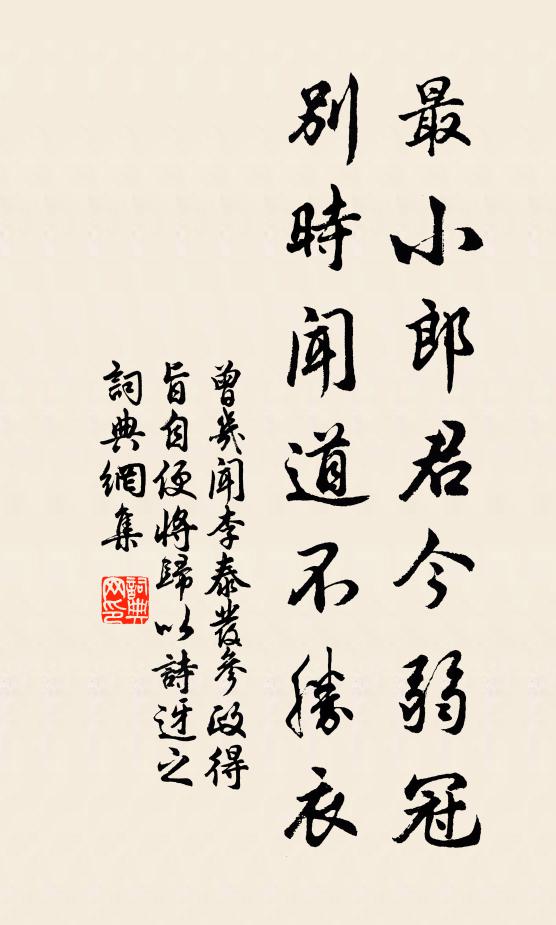 最小郎君今弱冠
別時闻道不勝衣
曾幾闻李泰發參政得
旨自便将歸以詩迓之
詞典網集
詞典